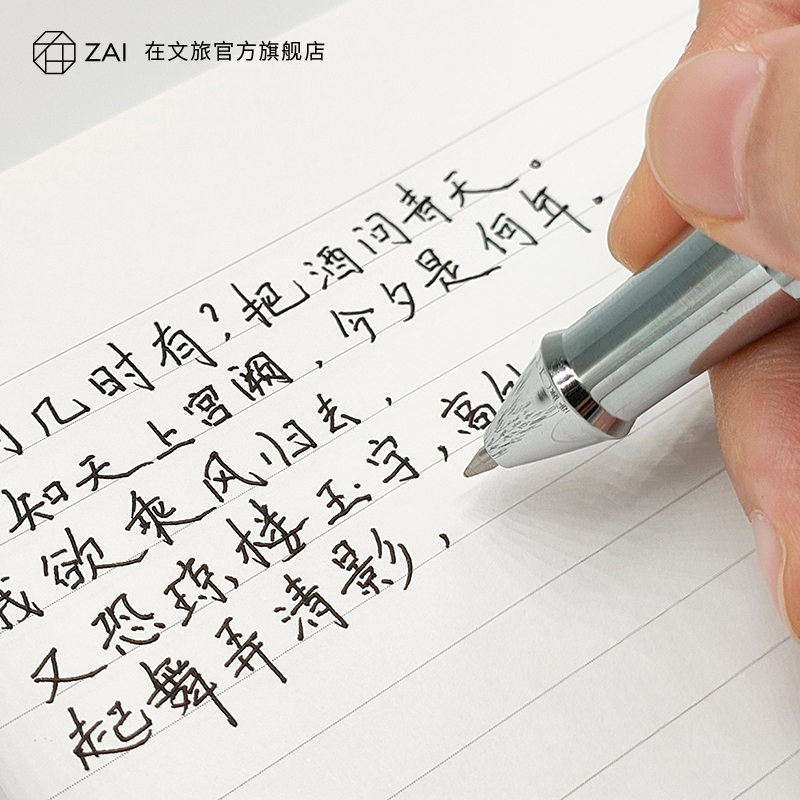 ZAI 在文旅官方旗舰店
几时有?把酒问青天。
知天上宫阙,今夕是何年。
我欲乘风归去,
又恐琼楼玉宇,高
起舞弄清影,